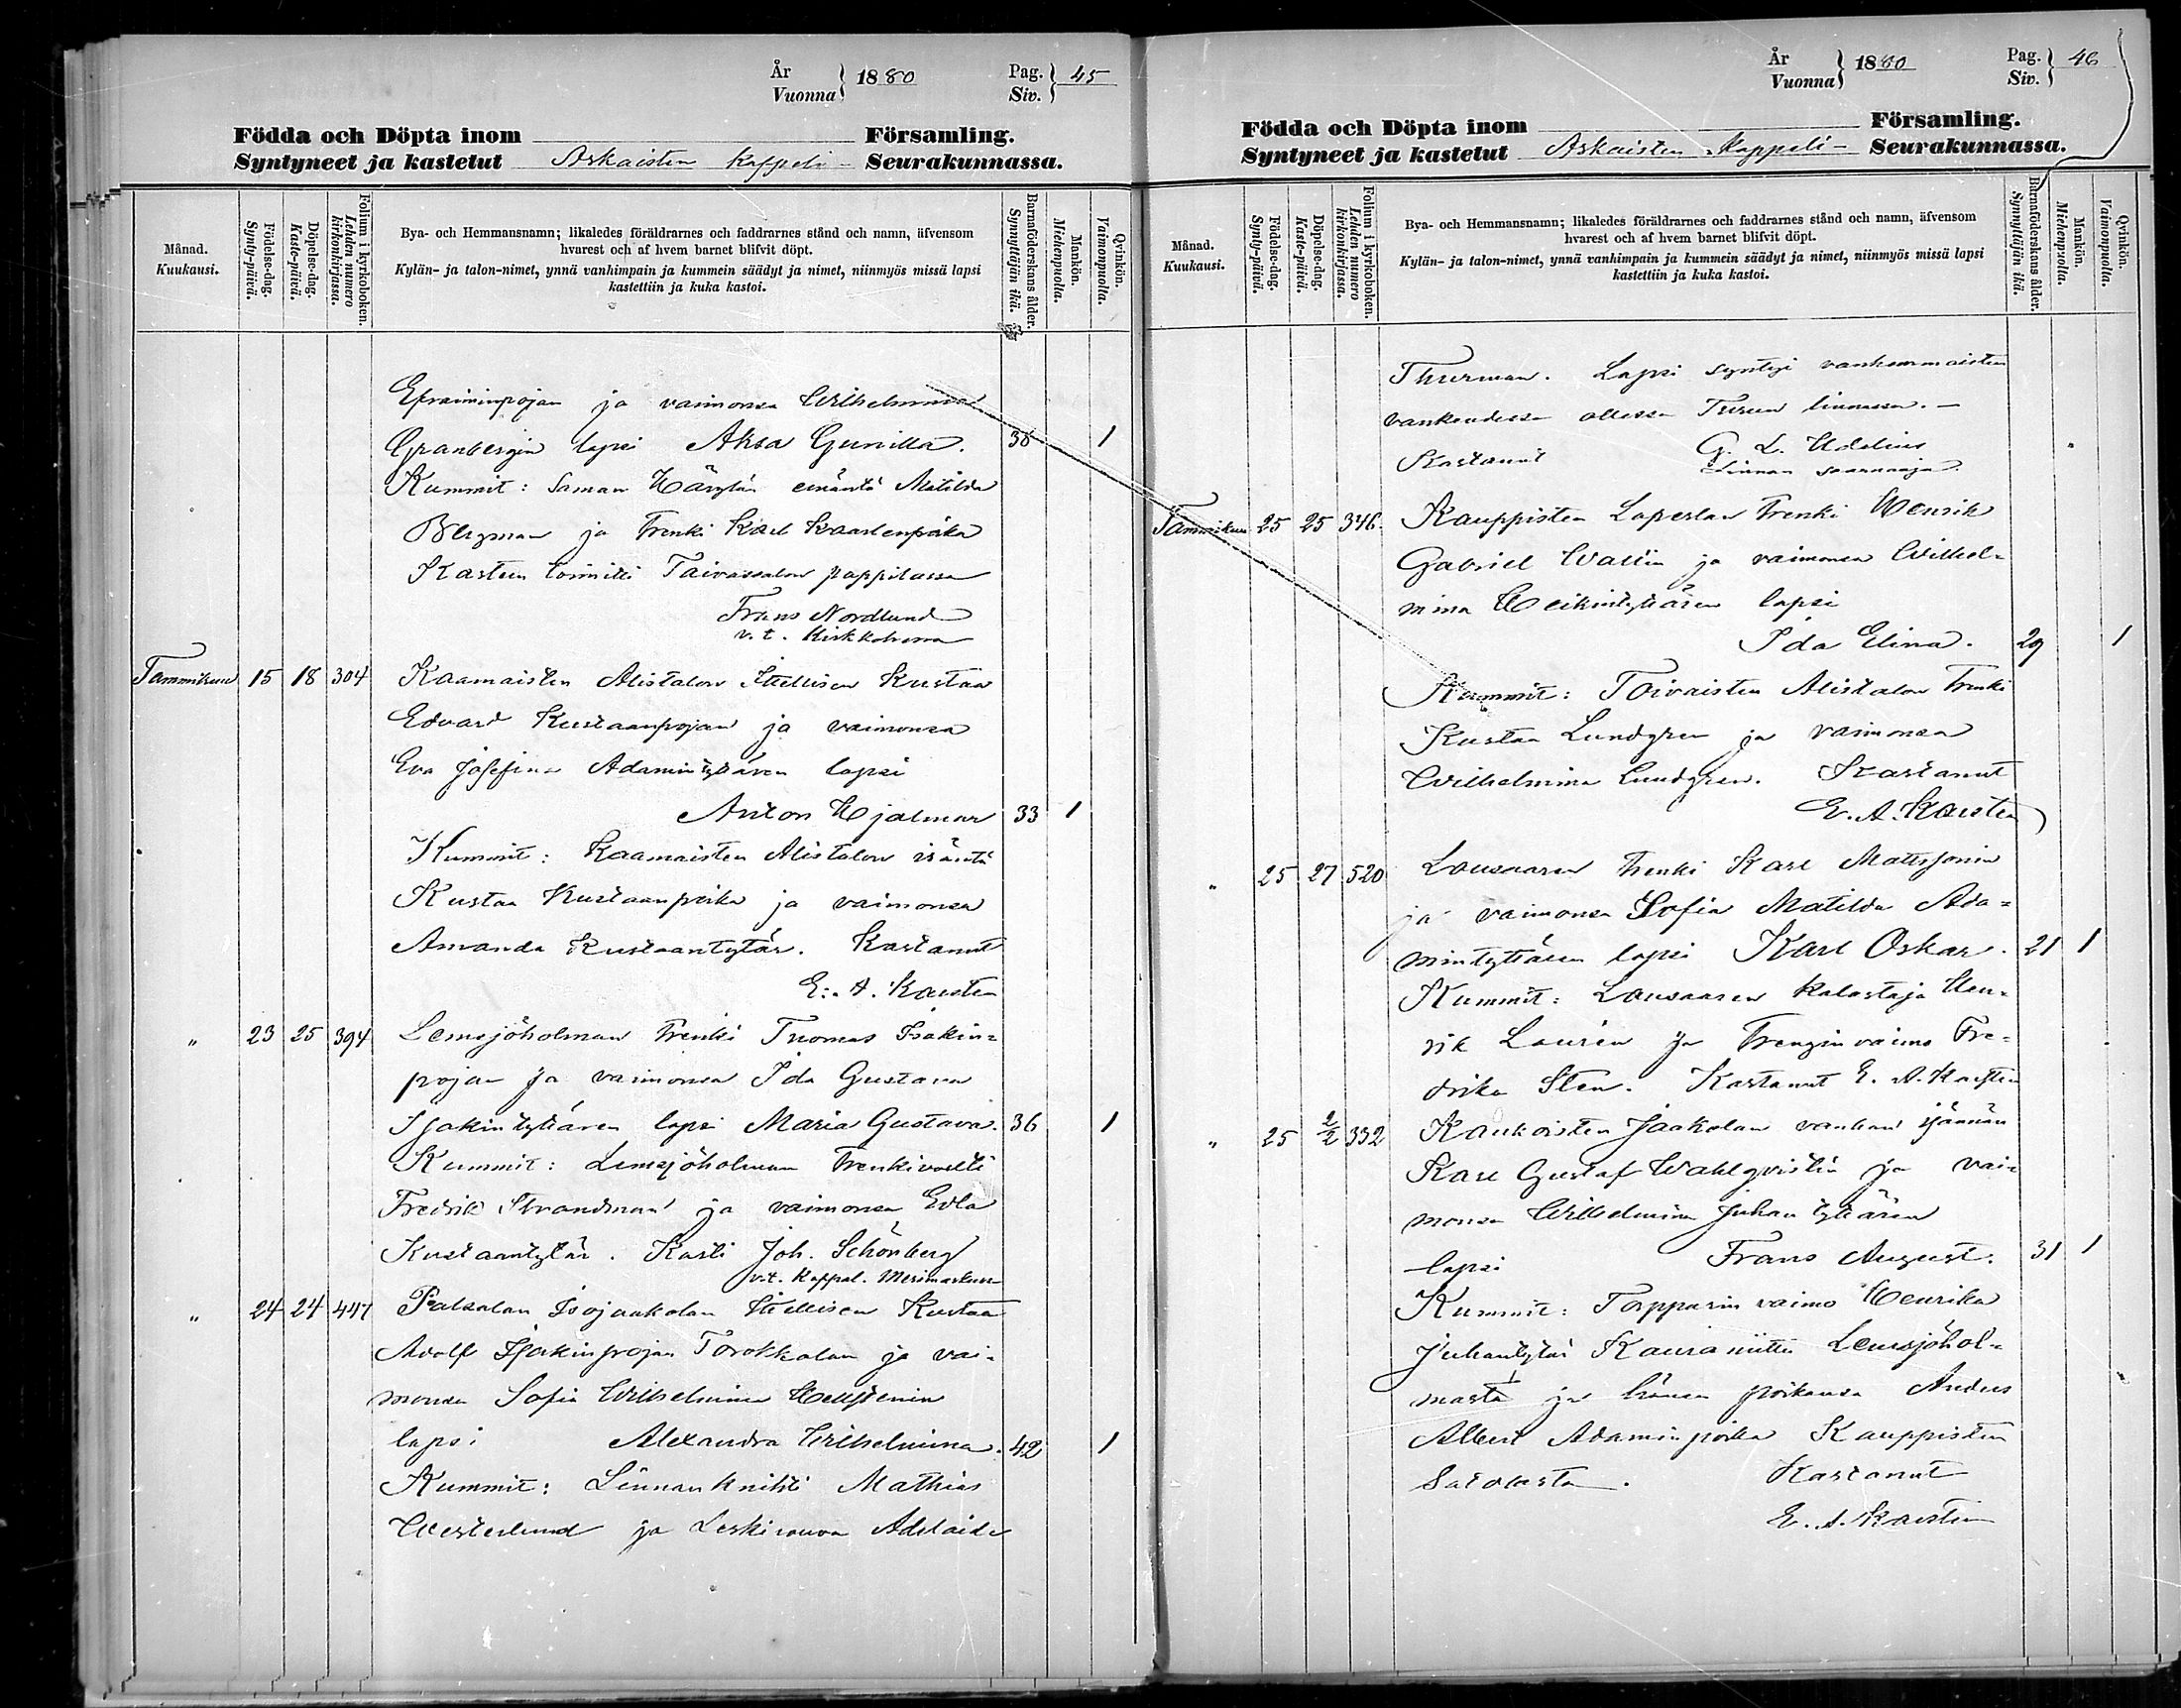 År
Vuonna } 1880
Pag.
Siv. } 45
Födda och Döpta inom Församling.
Syntyneet ja kastetut Askaisten Kappeli- Seurakunnassa.
Månad.
Kuukausi.
Födelse-dag.
Synty-päivä.
Döpelse-dag.
Kaste-päivä.
Folium i kyrkoboken.
Lehden numero kirkonkirjassa.
Bya- och Hemmansnamn; likaledes föräldrarnes och faddrarnes stånd och namn, äfvensom
hvarest och af hvem barnet blifvit döpt.
Kylän- ja talon-nimet, ynnä vanhimpain ja kummein säädyt ja nimet, niinmyös missä lapsi
kastettiin ja kuka kastoi.
Barnaföderskans ålder.
Synnyttäjän ikä.
Mankön.
Miehenpuolta.
Qvinkön.
Vaimonpuolta.
Efraiminpojan ja vaimonsa Wilhelmina
Granbergin lapsi Aksa Gunilla. 1
Kummit: Saman emäntä Matilda
Bergman ja Trenki Karl Kaarlenpoika
Kasteen toimitti Taivassalon pappilassa
Frans Nordlund
v. t. Kirkkoherra
Tammikuu 15 18 304 Kaamaisten Alistalon Itellisen Kustaa
Edvard Kustaanpojan ja vaimonsa
Eva Josefina Adamintyttären lapsi
Anton Hjalmar 33 1
Kummit: Kaamaisten Alistalon isäntä
Kustaa Kustaanpoika ja vaimonsa
Amanda Kustaantytär. Kastanut
E. A. Karsten
" 23 25 394 Lemsjöholman Trenki Tuomas Isakin-
pojan ja vaimonsa Ida Gustava
Isakintyttären lapsi Maria Gustava. 36 1
Kummit: Lemsjöholman Trenkivoutti
Fredrik Strandman ja vaimonsa Edla
Kustaantytär. Kasti Joh. Schönberg
v.t. Kappal. Merimaskussa
" 24 24 447 Isojaakolan Itellisen Kustaa
Adolf Isakinpojan Torokkalan ja vai-
monsa Sofia Wilhelmina
lapsi Alexandra Wilhelmina. 42 1
Kummit: Linnan knihti Mathias
Westerlund ja Leskirouva Adelaide
År
Vuonna } 1880
Pag.
Siv. } 46
Födda och Döpta inom Församling.
Syntyneet ja kastetut Askaisten Kappeli- Seurakunnassa.
Månad.
Kuukausi.
Födelse-dag.
Synty-päivä.
Döpelse-dag.
Kaste-päivä.
Folium i kyrkoboken.
Lehden numero kirkonkirjassa.
Bya- och Hemmansnamn; likaledes föräldrarnes och faddrarnes stånd och namn, äfvensom
hvarest och af hvem barnet blifvit döpt.
Kylän- ja talon-nimet, ynnä vanhimpain ja kummein säädyt ja nimet, niinmyös missä lapsi
kastettiin ja kuka kastoi.
Barnaföderskans ålder.
Synnyttäjän ikä.
Mankön.
Miehenpuolta.
Qvinkön.
Vaimonpuolta.
Thurman. Lapsi syntyi vanhemmaisten
vankeudessa ollessa Turun linnassa. -
Kastanut G. L. Udelius
Linnan saarnaaja.
Tammikuu 25 25 346. Kauppisten Trenki Henrik
Gabriel Wallin ja vaimonsa Wilhel-
mina Heikintyttären lapsi
Ida Elina. 29 1
Kummit: Toivaisten Alistalon Trenki
Kustaa Lundgren ja vaimonsa
Wilhelmina Lundgren. Kastanut
E. A. Karsten
" 25 27 520 Lousaaren Trenki Karl Mattssonin
ja vaimonsa Sofia Matilda Ada-
mintyttären lapsi Karl Oskar. 21 1
Kummit: Lousaaren kalastaja Hen-
rik Laurén ja Trenginvaimo Fre-
drika Sten. Kastanut E. A. Karsten
" 25 2/2 332 Kankoisten Jaakolan vanhan isännän
Karl Gustaf Wahlqvistin ja vai-
monsa Wilhelmina Juhantyttären
lapsi Frans August. 31 1
Kummit: Torpparin vaimo Henrika
Juhantytär Kauraniittu Lemsjöhol-
masta ja hänen poikansa Anders
Albert Adaminpoika Kauppisten
Kastanut
E. A. Karsten